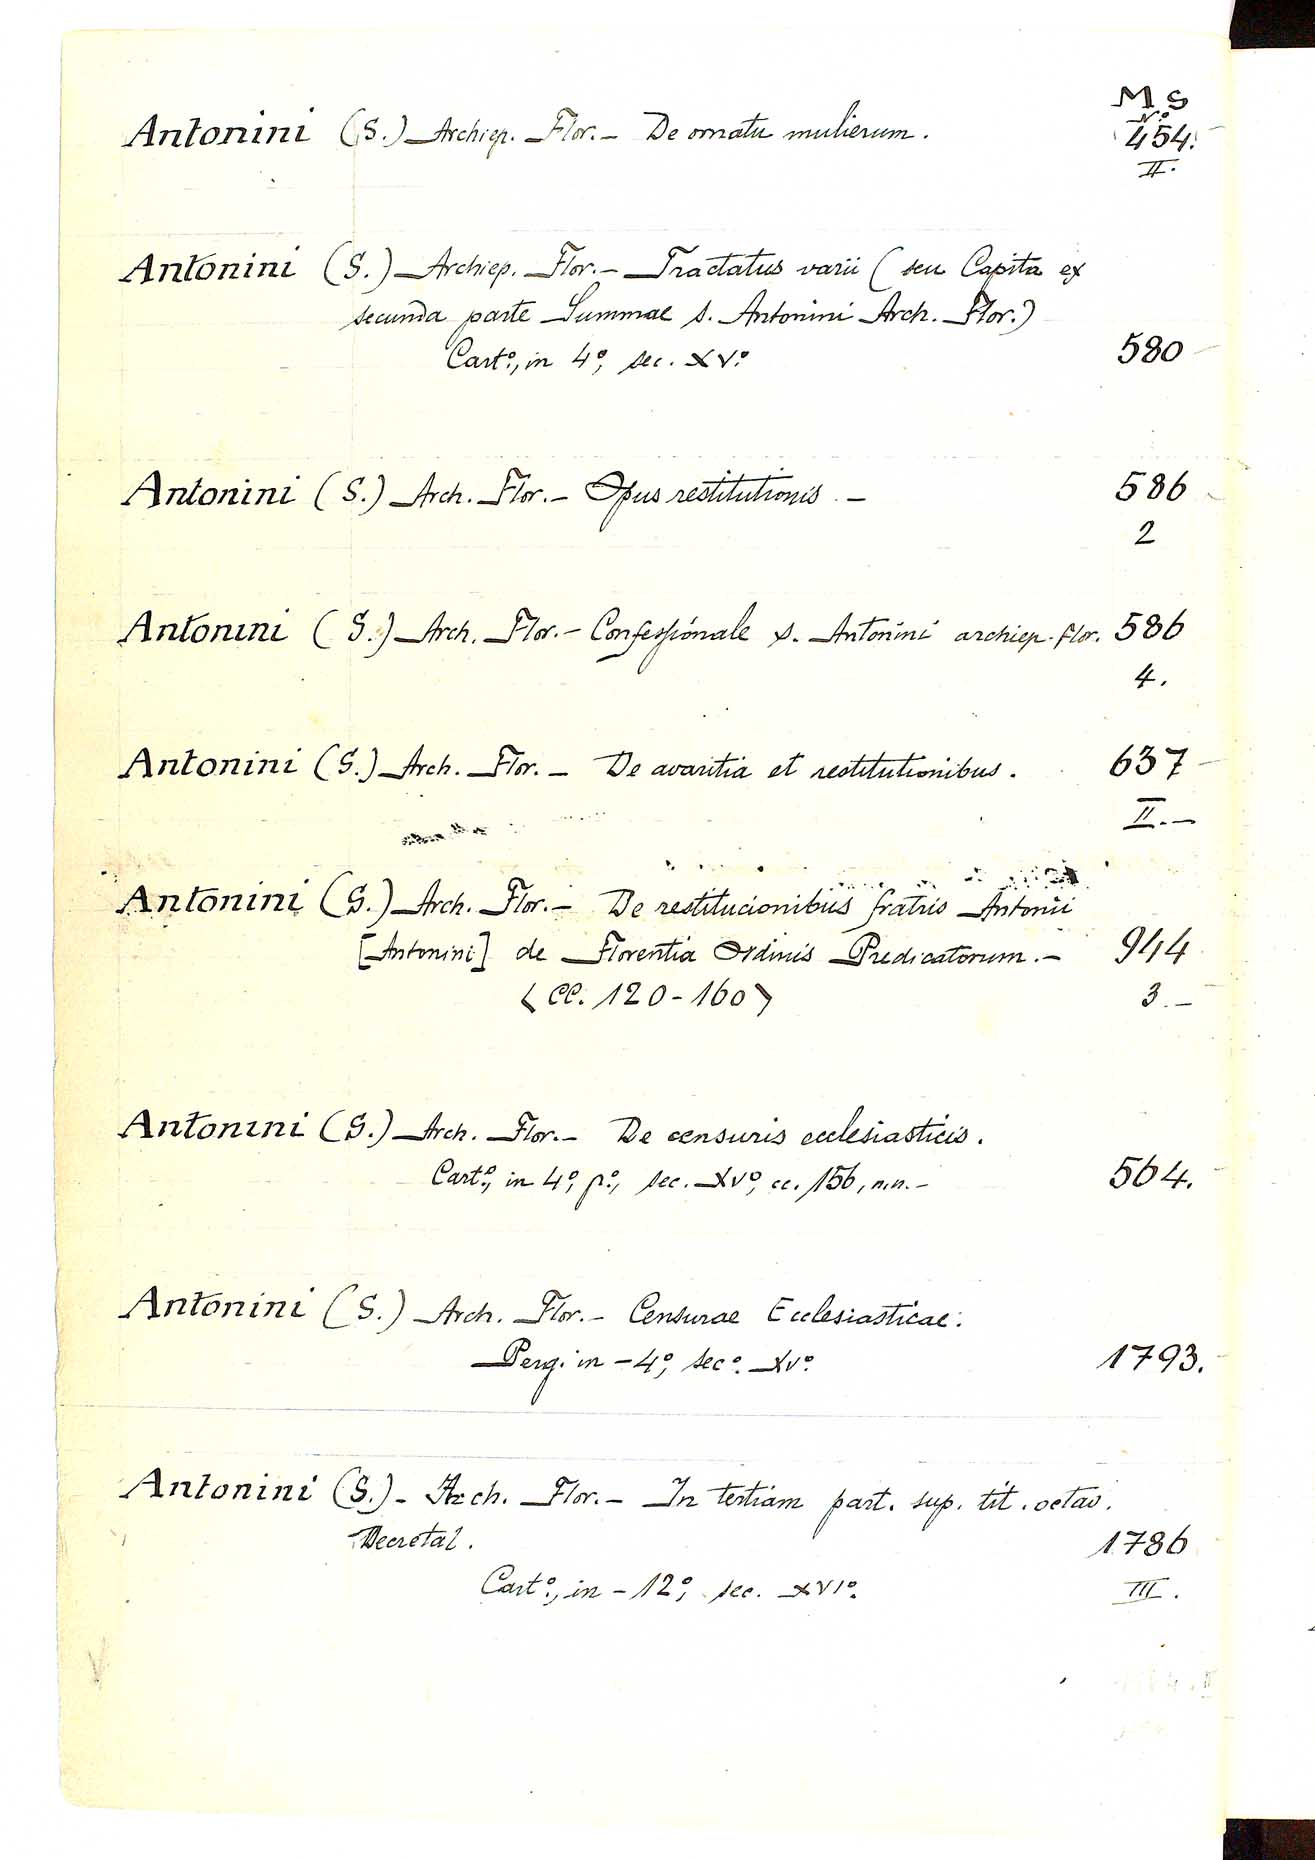 MS
N.o
Antonini (S.) Archiep. Flor. – De ornatu mulierum. 454.
II.
Antonini (S.) Archiep. Flor. – Tractatus varii (seu Capita ex
secunda parte Summae s. Antonini Arch. Flor.)
Cart.o, in 4.o, sec. XV.o 580
Antonini (S.) Arch. Flor. – Opus restitutionis. – 586
2
Antonini (S.) Arch. Flor. – Confessionale s. Antonini archiep. Flor. 586
4.
Antonini (S.) Arch. Flor. – De avaritia et restitutionibus. 637
II. –
Antonini (S.) Arch. Flor. – De restitucionibus fratris Antonii
[Antonini] de Florentia Ordinis Predicatorum. – 944
(cc. 120-160) 3. –
Antonini (S.) Arch. Flor. – De censuris ecclesiasticis.
Cart.o, in 4.o, p.o, sec. XV.o, cc. 156, n.n. – 564.
Antonini (S.) Arch. Flor. – Censurae Ecclesiasticae.
Perg. in – 4.o, sec.o XV.o 1793.
Antonini (S.) – Arch. Flor. – In tertiam part. sup. tit. octav.
Decretal. 1786
Cart.o, in – 12.o, sec. XVI.o III.